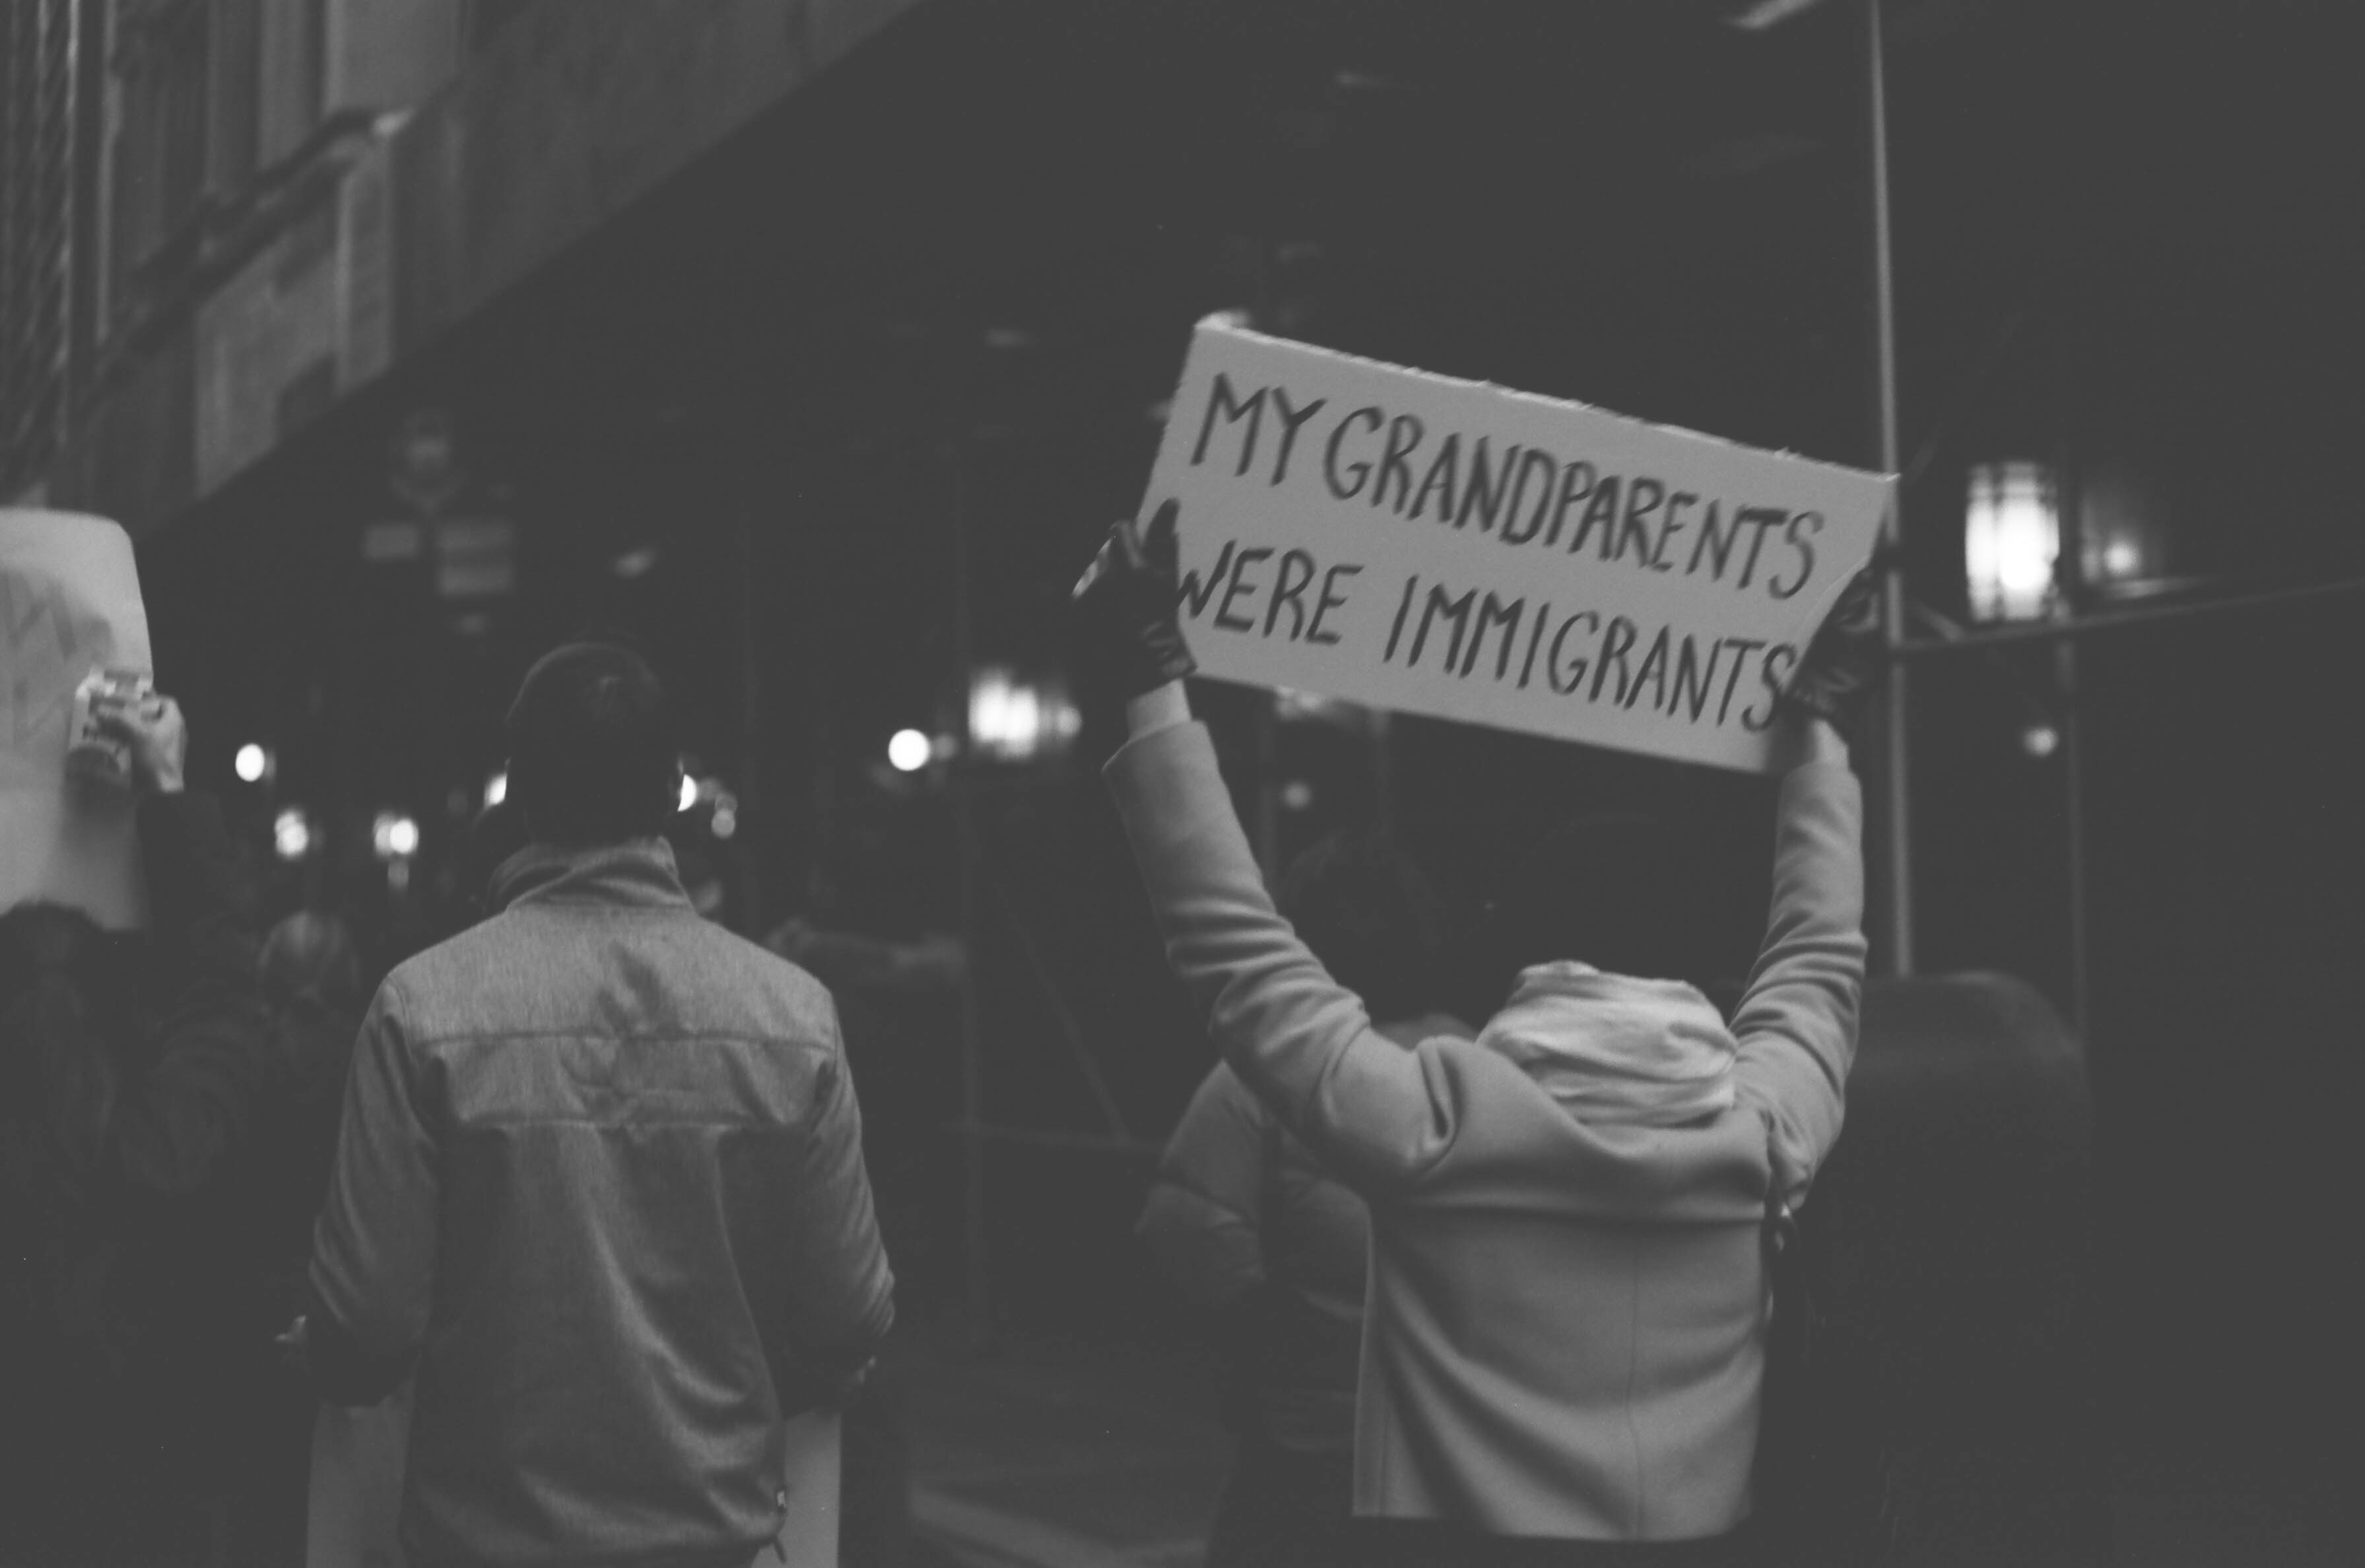 MY GRANDPARENTS
WERE IMMIGRANTS